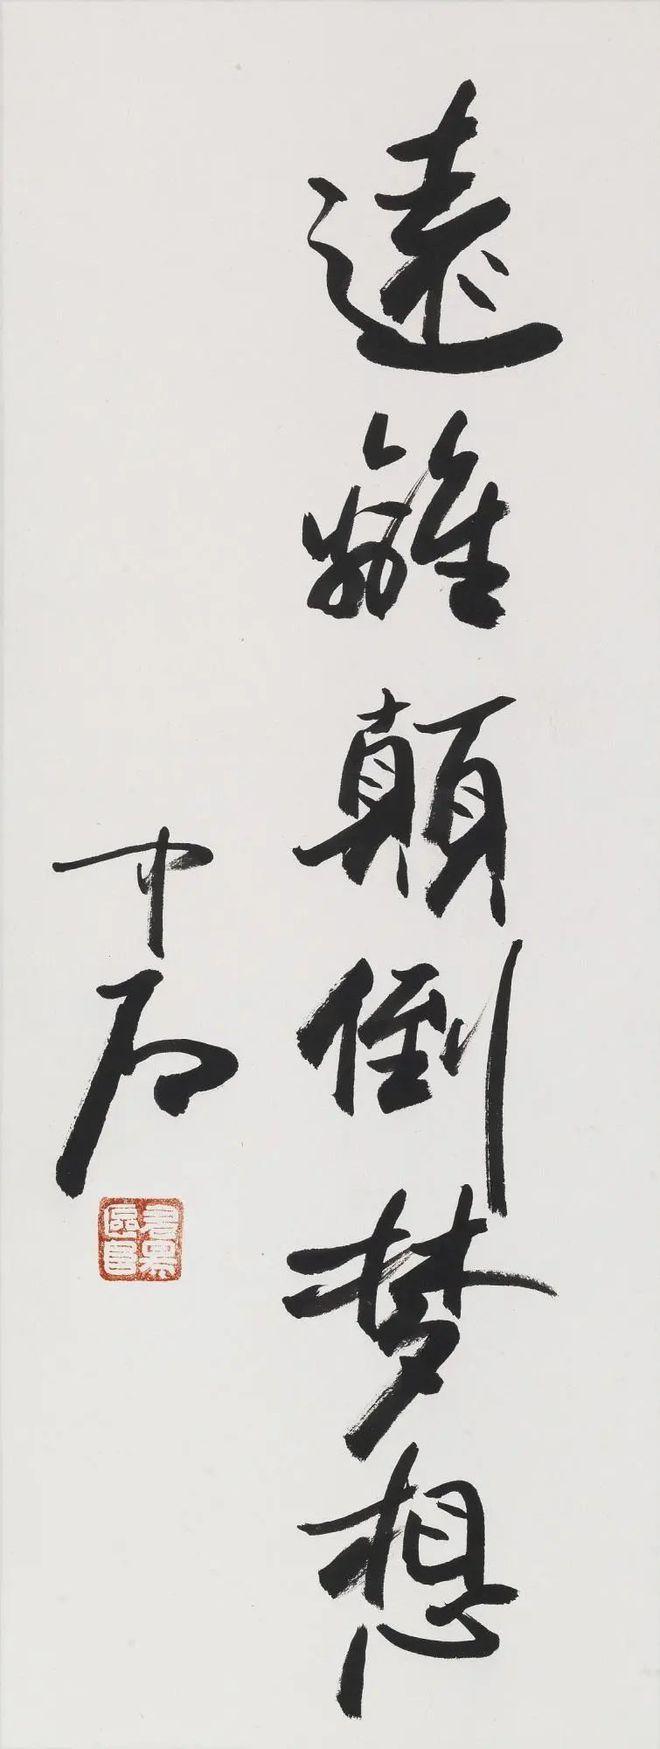 遠離顛倒梦想
中石